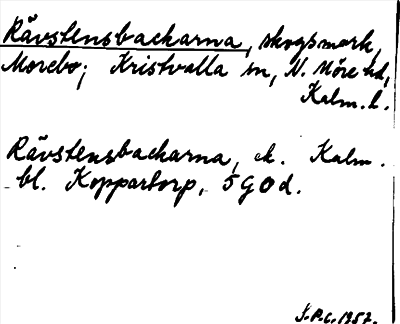 Rävstensbackarna, skogsmark,
Morebo; Kristvalla sn, N. Möre hd,
Kalm. l.
Rävstensbackarna, ek. Kalm.
bl. Koppartorp, 5 G 0 d.
1957.